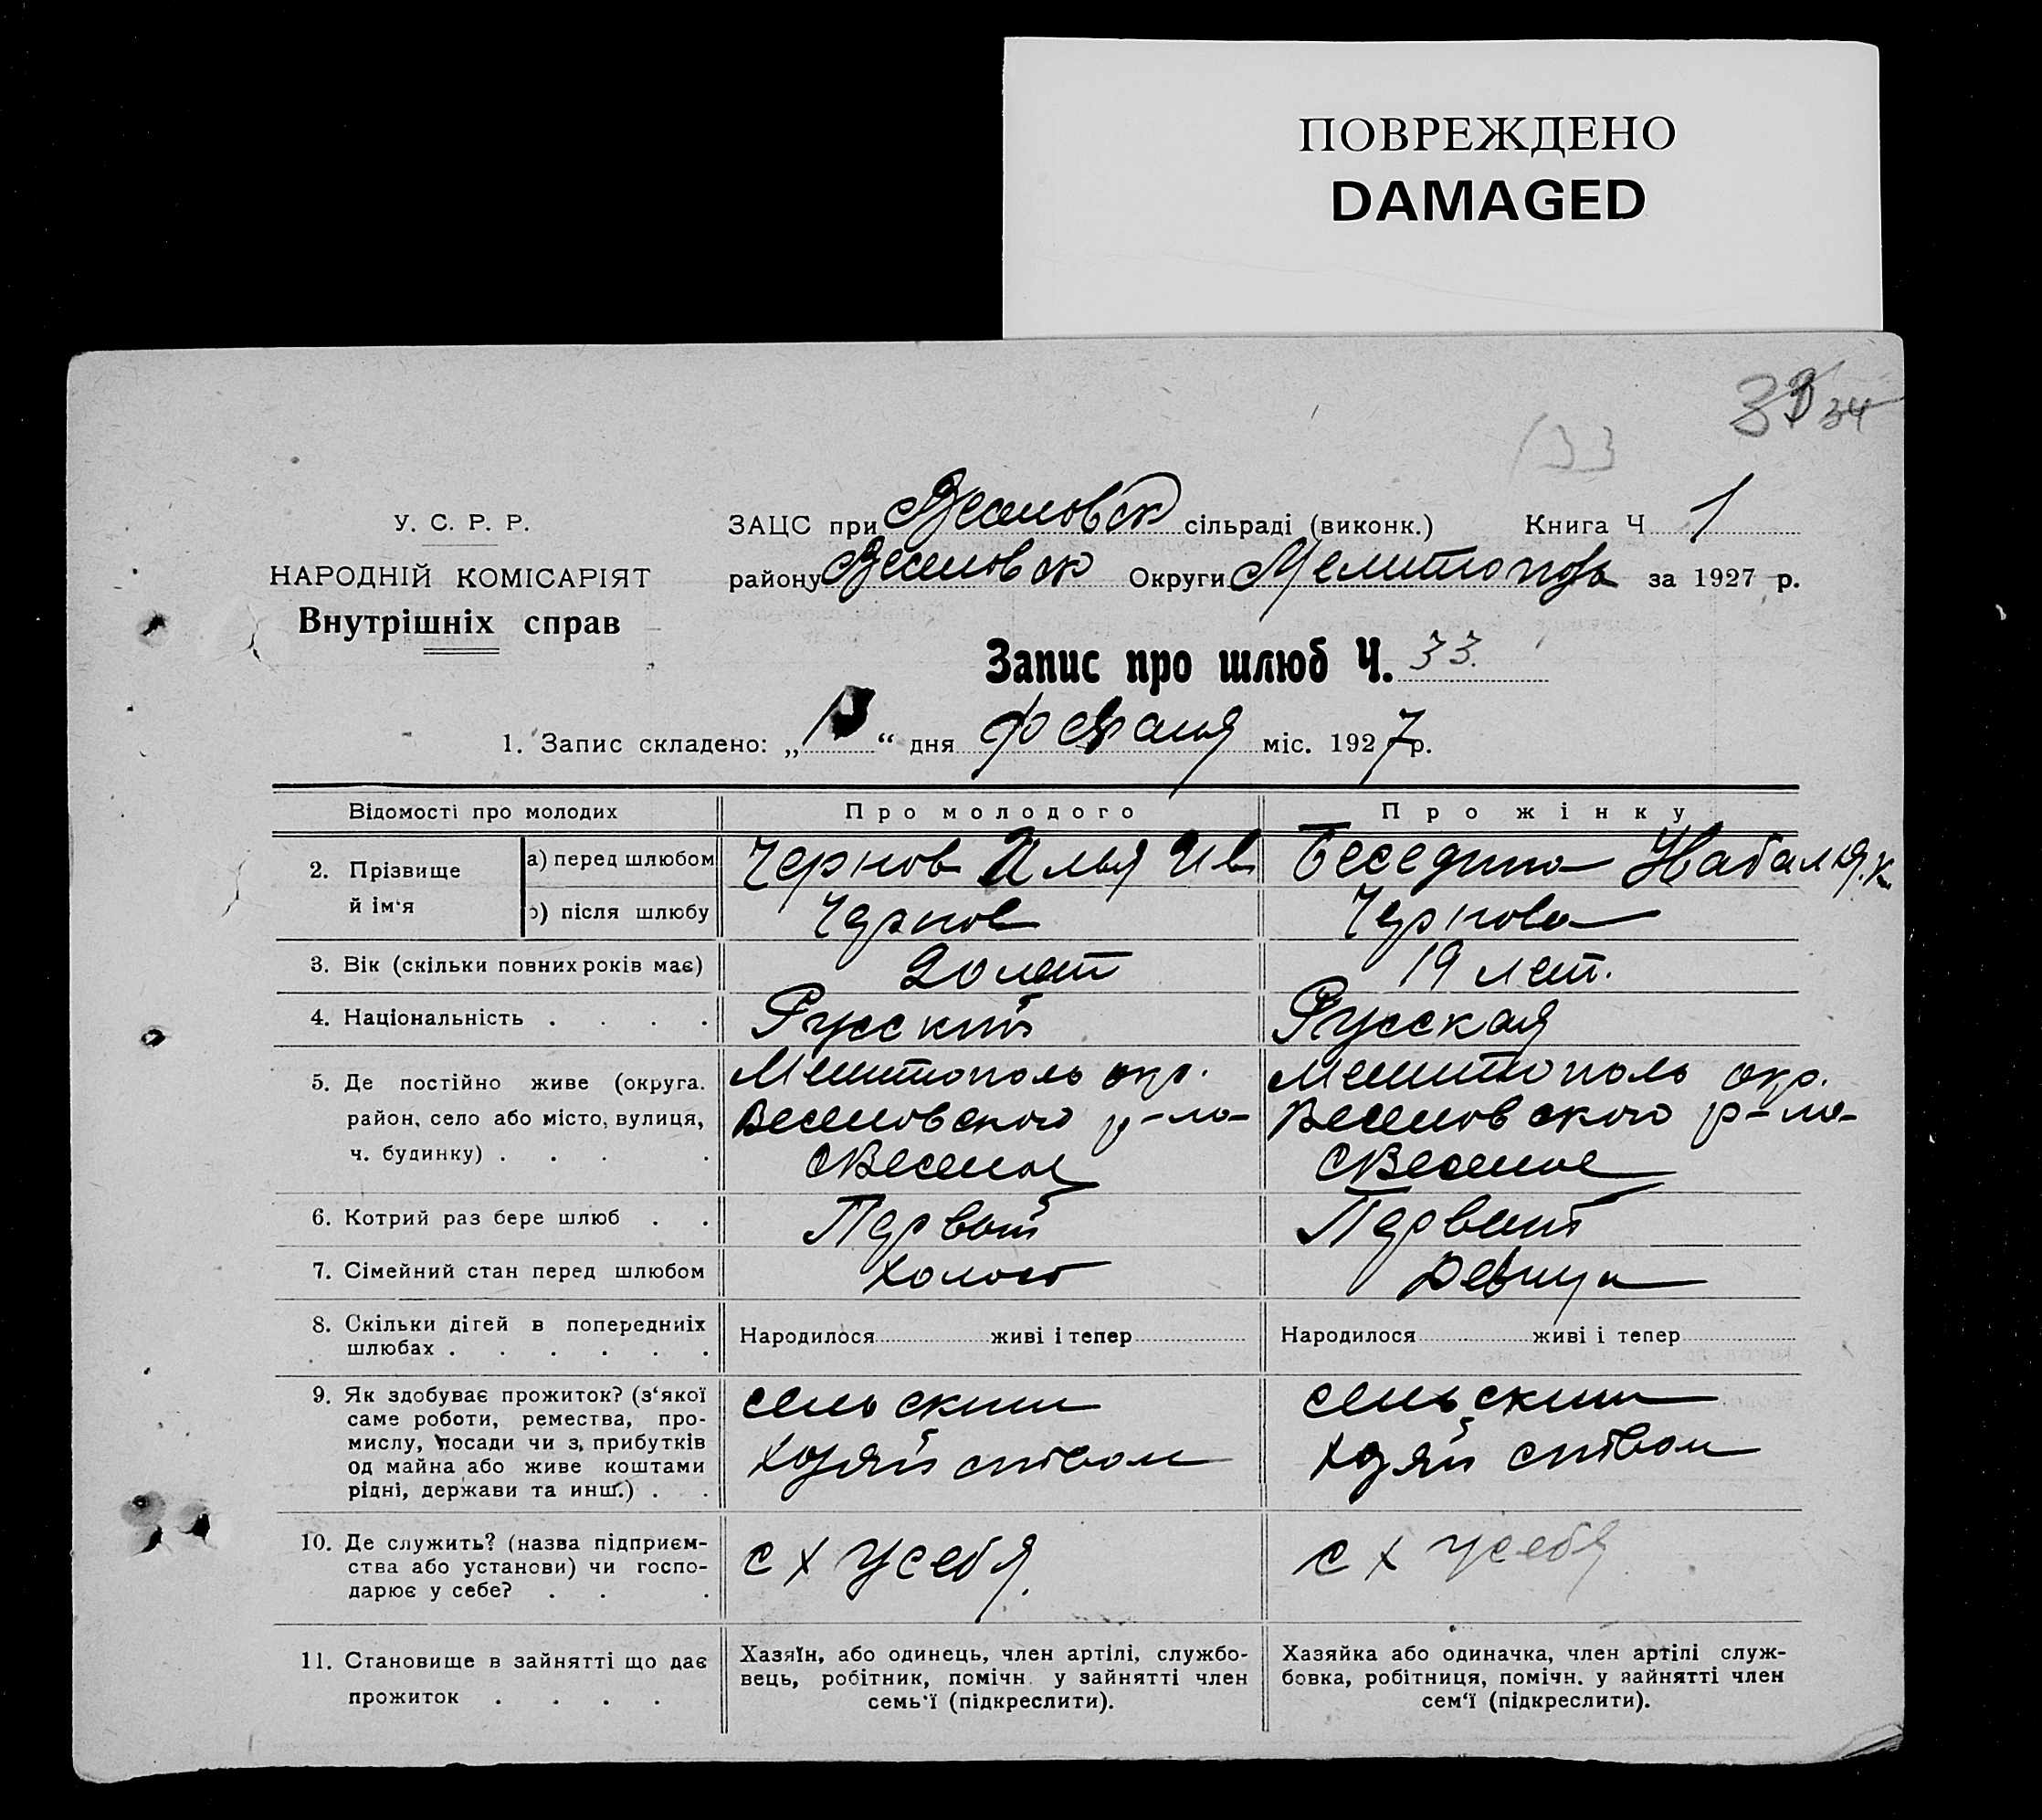 ПОВРЕЖДЕНО
DAMAGED
34
133
У. С. Р. Р.
НАРОДНІЙ КОМІСАРІЯТ
Внутрішніх справ
ЗАЦС при Веселовск сільраді (виконк.) Книга Ч 1
району Веселовск Округи Мелитополь за 1927 р.
Запис про шлюб Ч. 33.
1. Запис складено: „ “ дня февраля міс. 1927 р.
Відомості про молодих Про молодого Про жінку
2. Прізвище й ім‘я
а) перед шлюбом Чернов Илья Ив Беседина
б) після шлюбу Чернов Чернова
3. Вік (скільки повних років має) 20 лет 19 лет.
4. Національність . . . . Русский Русская
5. Де постійно живе (округа. Мелитополь окр. Мелитополь окр.
район, село або місто, вулиця, Веселовского р-на Веселовского р-на
ч. будинку) . . . . с Веселое с Веселое
6. Котрий раз бере шлюб . . Первый Первый
7. Сімейний стан перед шлюбом холост девица
8. Скільки дітей в попередниіх Народилося живі і тепер Народилося живі і тепер
шлюбах . . . . . .
9. Як здобуває прожиток? (з‘якої сельским сельским
саме роботи, ремества, про-
мислу, посади чи з, прибутків хозяйством хозяйством
од майна або живе коштами
рідні, держави та инш.) . .
10. Де служить? (назва підприєм- с х у себя. с х у себя
ства або установи) чи госпо-
дарює у себе? . . .
11. Становище в зайнятті що дає Хазяїн, або одинець, член артілі, службо- Хазяйка або одиначка, член артілі служ-
прожиток . . . . вець, робітник, помічн. у зайнятті член бовка, робітниця, помічн. у зайнятті член
семь‘ї (підкреслити). сем‘ї (підкреслити).